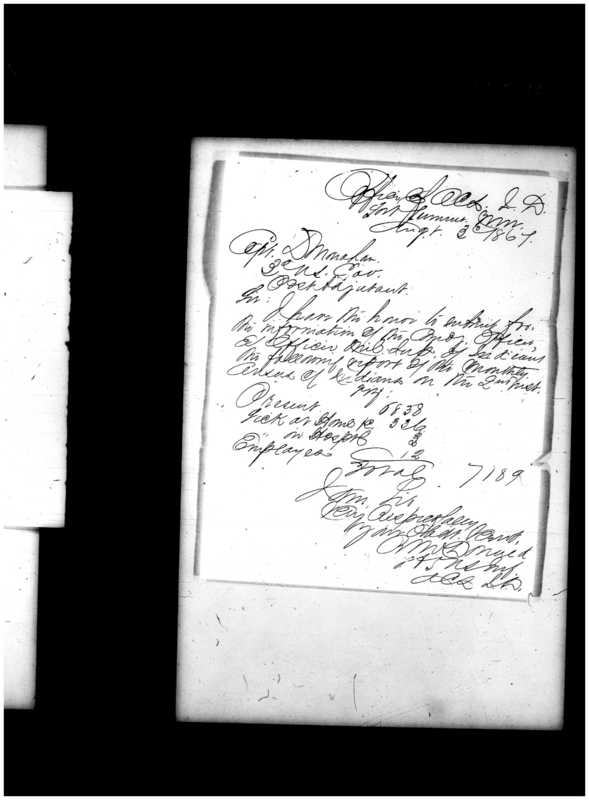 Office of ACS, I. D.
Fort Sumner, N.M.
Augt. 3d 1867.
Capt. D Monahan.
3d U.S. Cav.
Post Adjutant.
Sir:
I have the honor to submit for
the information of the Comdg. Officer,
& Officer Mil. Supt. of Indians
the following report of the monthly
Census of Indians on the 2nd inst.
viz:
Present 6838
Sick at Homes &c 336
in Hospital 3
Employees 12
Total 7189
I am, Sir
Very Respectfully
Your Obdt. Servt.
Lt 5 US Inf
ACS I.D.